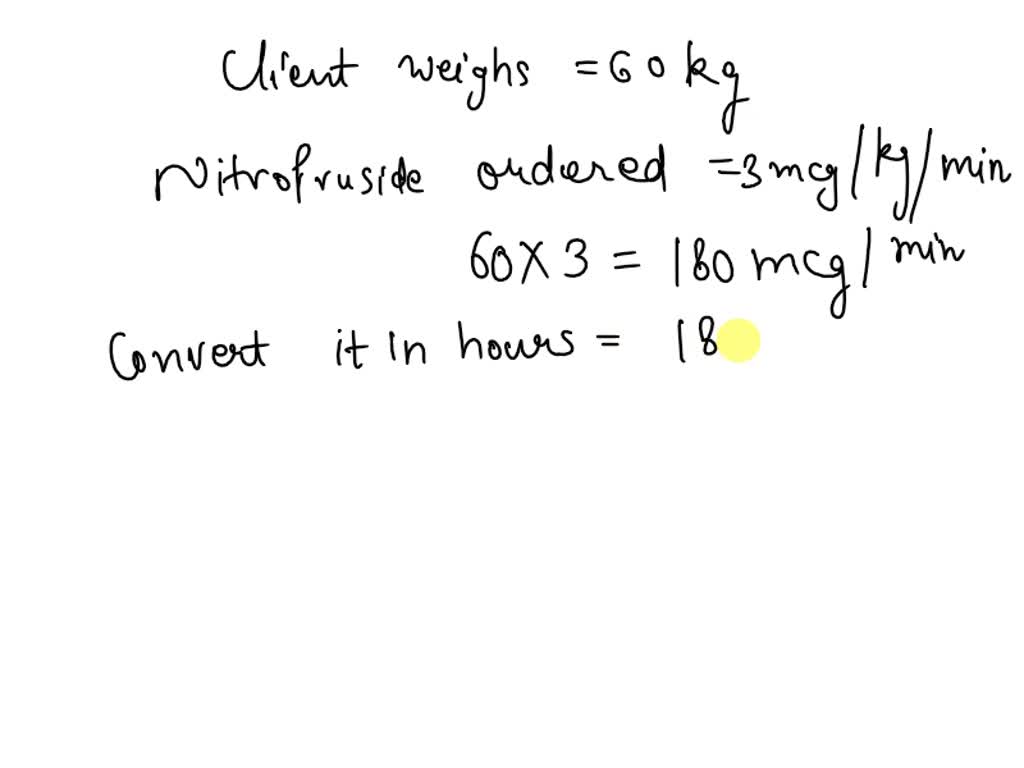 Client weighs = 60 kg
Nitrofruside ordered = 3 mcg/kg/min
60 X 3 = 180 mcg/min
Convert it in hours = 18